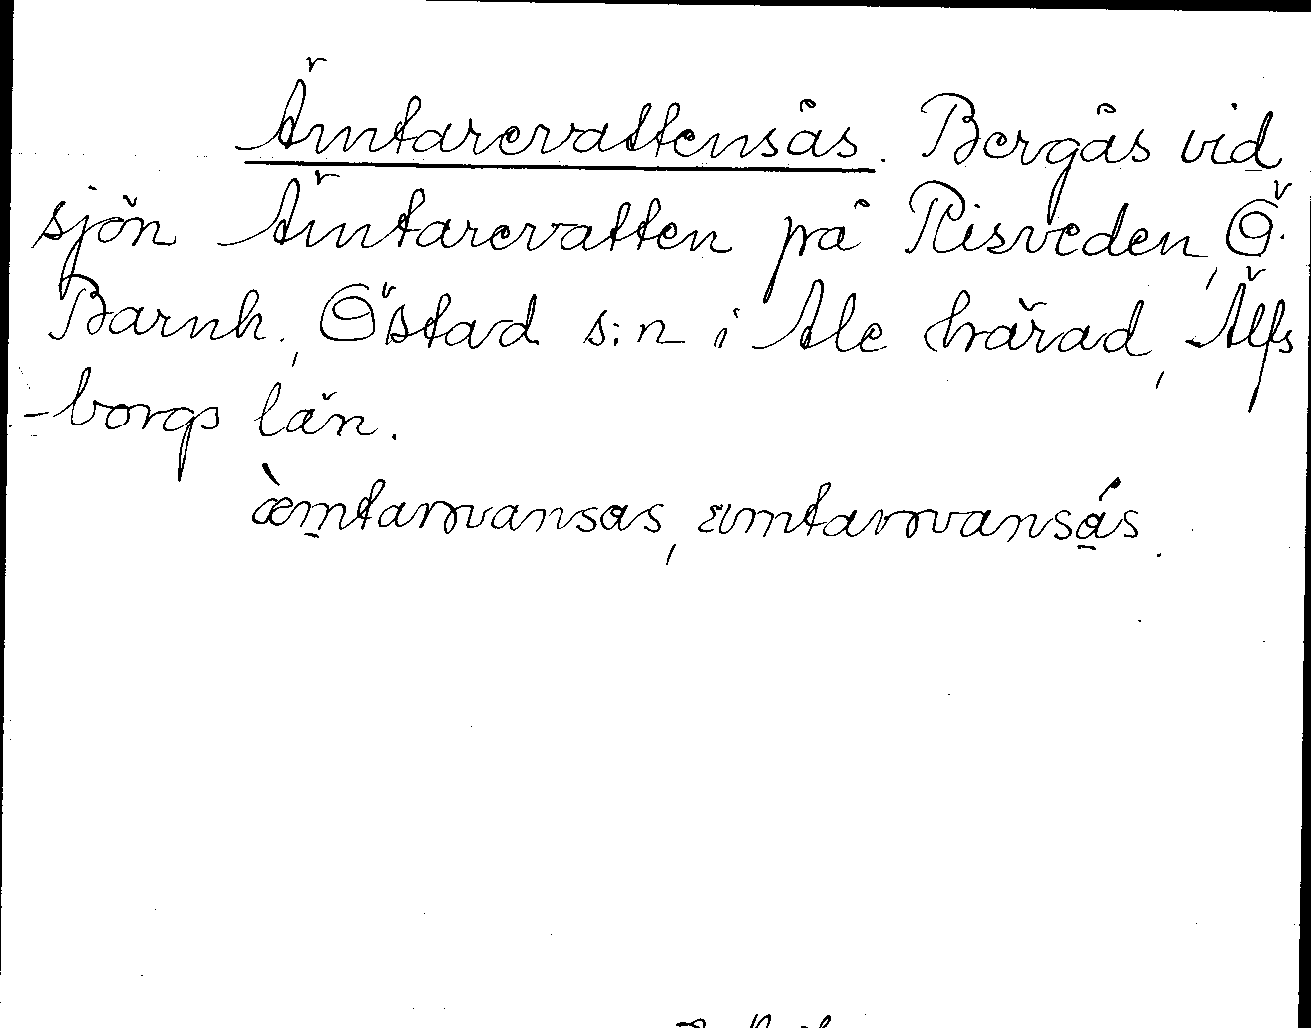 Ämtarevattensås. Bergås vid
sjön Ämtarevatten på Risveden, Ö.
Barnh., Östad s:n i Ale härad, Älfs
-borgs län.
æ̀mtarvansas, æmtarvansás.